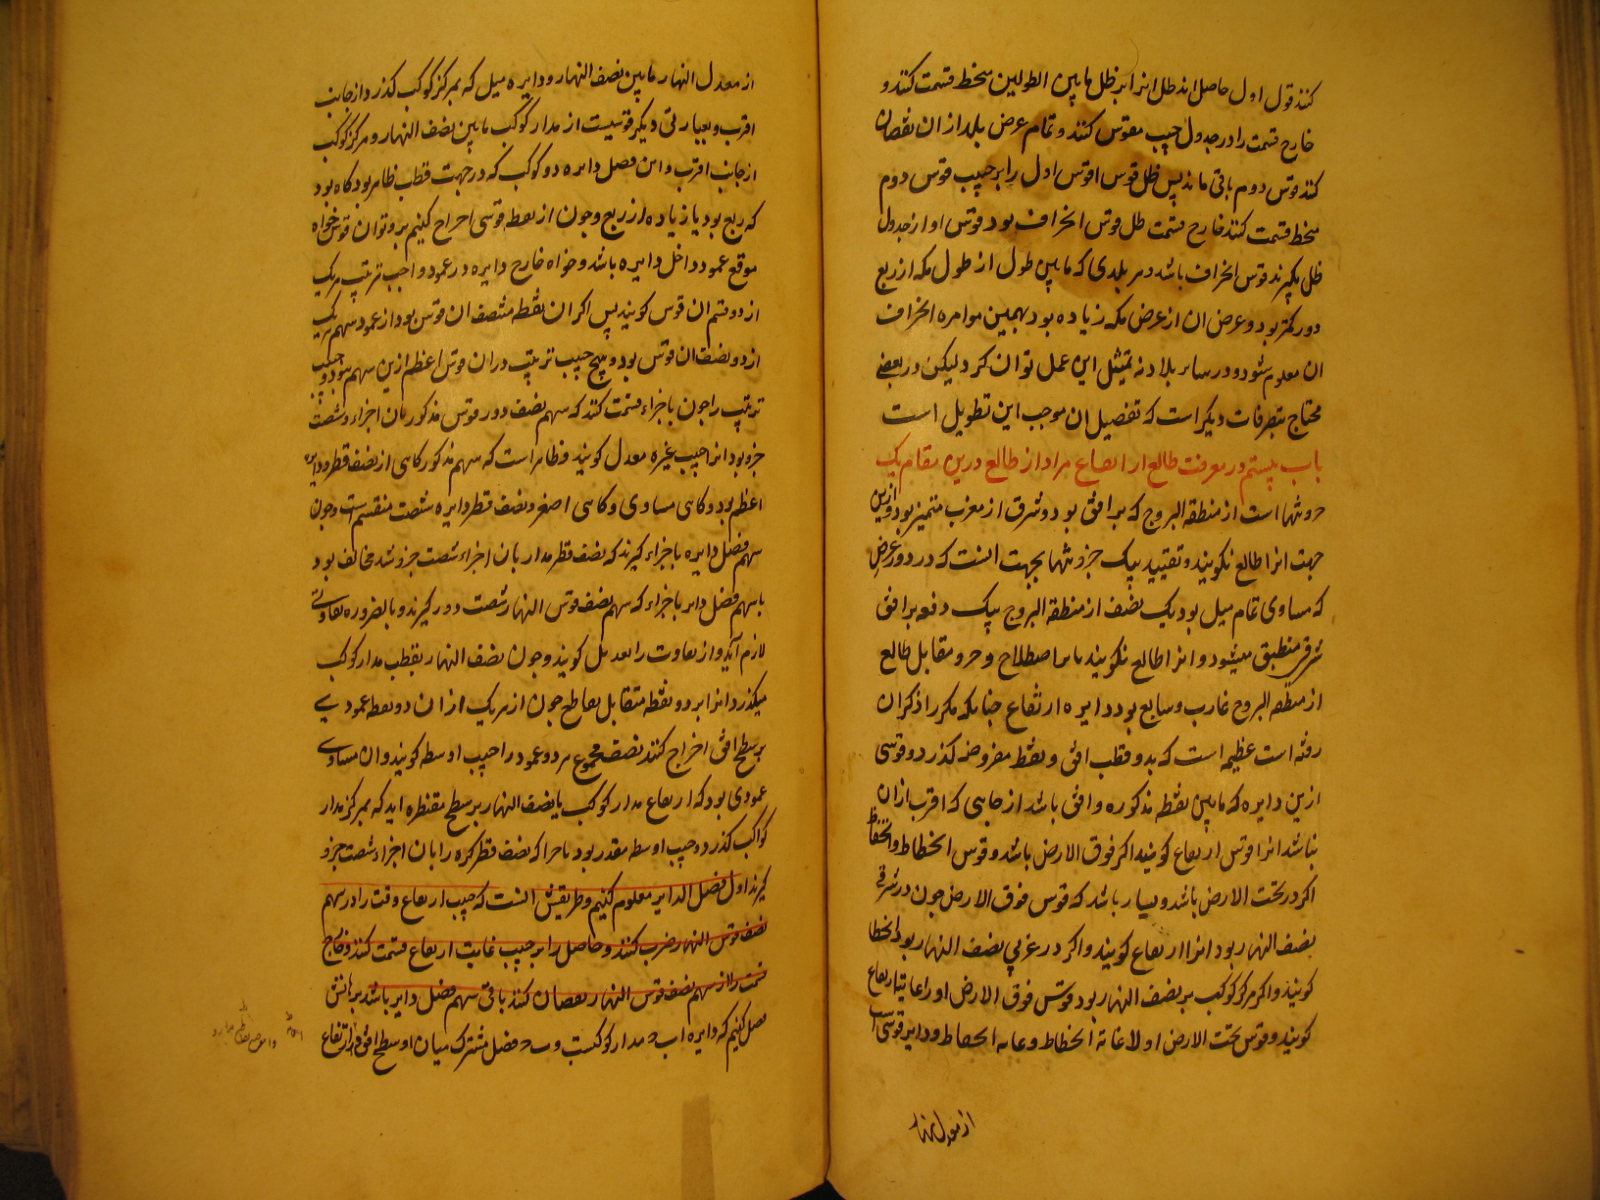 کنند قول اول حاصل اند ظل انرا بر ظل مابین الطولین منحط قسمت کنند و
خارج قسمت را در جدول جیب مقوس کنند و تمام عرض بلد از ان نقصان
کنند قوس دوم باقی ماند پس ظل قوس اول را بر جیب قوس دوم
منحط قسمت کنند خارج قسمت ظل قوس انحراف بود قوس او از جدول
ظل بگیرند قوس انحراف باشد در بلدی که مابین طول از طول مکه از ربع
دور کمتر بود و عرض ان از عرض مکه زیاده بود بهمین موامره انحراف
ان معلوم شود و در سایر بلاد نه تمثیل این عمل توان کرد لیکن در بعضی
محتاج بتصرفات دیکر است که تفصیل ان موجب این تطویل است
باب بیستم در معرفت طالع از ارتفاع مراد از طالع درین مقام یک
جزو تنها است از منطقة البروج که بر افق بود و شرق از مغرب متمیز بود و ازین
جهت انرا طالع نکویند و تقیید بیک جزو تنها بجهت انست که در دور عرض
که مساوی تمام میل بود یک نصف از منطقة البروج بیک دفعه بر افق
شرقی منطبق میشود و انرا طالع نکویند بنابر اصطلاح و جزو مقابل طالع
از منطقه البروج غارب و سابع بود دایره ارتفاع چنانکه مکرر ذکر ان
رفته است عظیمه است که بدو قطب افق و بنقطه مفروضه کذرد و قوسی
ازین دایره که مابین نقطه مذکوره و افق باشد از جانبی که اقرب ازان
نباشد انرا قوس ارتفاع کویند اکر فوق الارض باشد و قوس انحطاط و انخفاض
اکر در تحت الارض باشد و بسیار باشد که قوس فوق الارض چون در شرقی
نصف النهار بود انرا ارتفاع کویند و اکر در غربی نصف النهار بود انحطاط
کویند و اکر مرکز کوکب بر نصف النهار بود قوس فوق الارض او را غایة ارتفاع
کویند و قوس تحت الارض او لا غایة انحطاط و غایه انحطاط و دایر قوسی است
از معدل النهار
از معدل النهار مابین نصف النهار و دایره میل که بمرکز کوکب کذرد از جانب
اقرب و بعبارتی دیکر قوسیست از مدار کوکب مابین نصف النهار و مرکز کوکب
از جانب اقرب و این فصل دایره دو کوکب که در جهت قطب ظاهر بود کاه بود
که ربع بود یا زیاده از ربع و چون از نقطه قوسی اخراج کنیم بر وتر ان قوس خواه
موقع عمود داخل دایره باشد و خواه خارج دایره در عمود واجب ترتیب هریک
از دو قسم ان قوس کویند پس اکر ان نقطه منتصف ان قوس بود از عمود سهم هریک
از دو نصف ان قوس بود و هیچ جیب ترتیب دران قوس اعظم ازین سهم نبود و جیب
ترتیب را چون باجزاء قسمت کنند که سهم نصف دور قوس مذکور بان اجزاء شصت
جزو بود انرا جیب غیره معدل کویند و ظاهر است که سهم مذکور کاهی از نصف قطر دایره
اعظم بود و کاهی مساوی و کاهی اصغر و نصف قطر دایره شصت منقسم است و چون
سهم فضل دایره باجزاء کیرند که نصف قطر مدار بان اجزاء شصت جزو شد مخالف بود
با سهم فضل دایر باجزاء که سهم نصف قوس النهار شصت دور کیرند و بالضروره تفاوتی
لازم آید و از تفاوت را تعدیل کویند و چون نصف النهار بقطب مدار کوکب
میکذرد انرا بر دو نقطه متقابل تقاطع چون از هریک ازان دو نقطه عمودی
بر سطح افق اخراج کنند نصف مجموع هر دو عمود را جیب اوسط کویند و ان مساوی
عمودی بود که از تقاطع مدار کوکب با نصف النهار بر سطح مقنطره آید که بمرکز مدار
کواکب کذرد و جیب اوسط مقدر بود باجزا که نصف قطر کره را بان اجزاء شصت جزو
کیرند اول فضل الدایر معلوم کنیم و طریقش انست که جیب ارتفاع وقت را در سهم
نصف قوس النهار ضرب کنند و حاصل را بر جیب غایت ارتفاع قسمت کنند و خارج
قسمت را از سهم نصف قوس النهار نقصان کنند باقی سهم فضل دایر باشد برهانش
فصل کنیم که دایره اب مدار کوکبست و ب فصل مشترک میان او سطح افق و ارتفاع